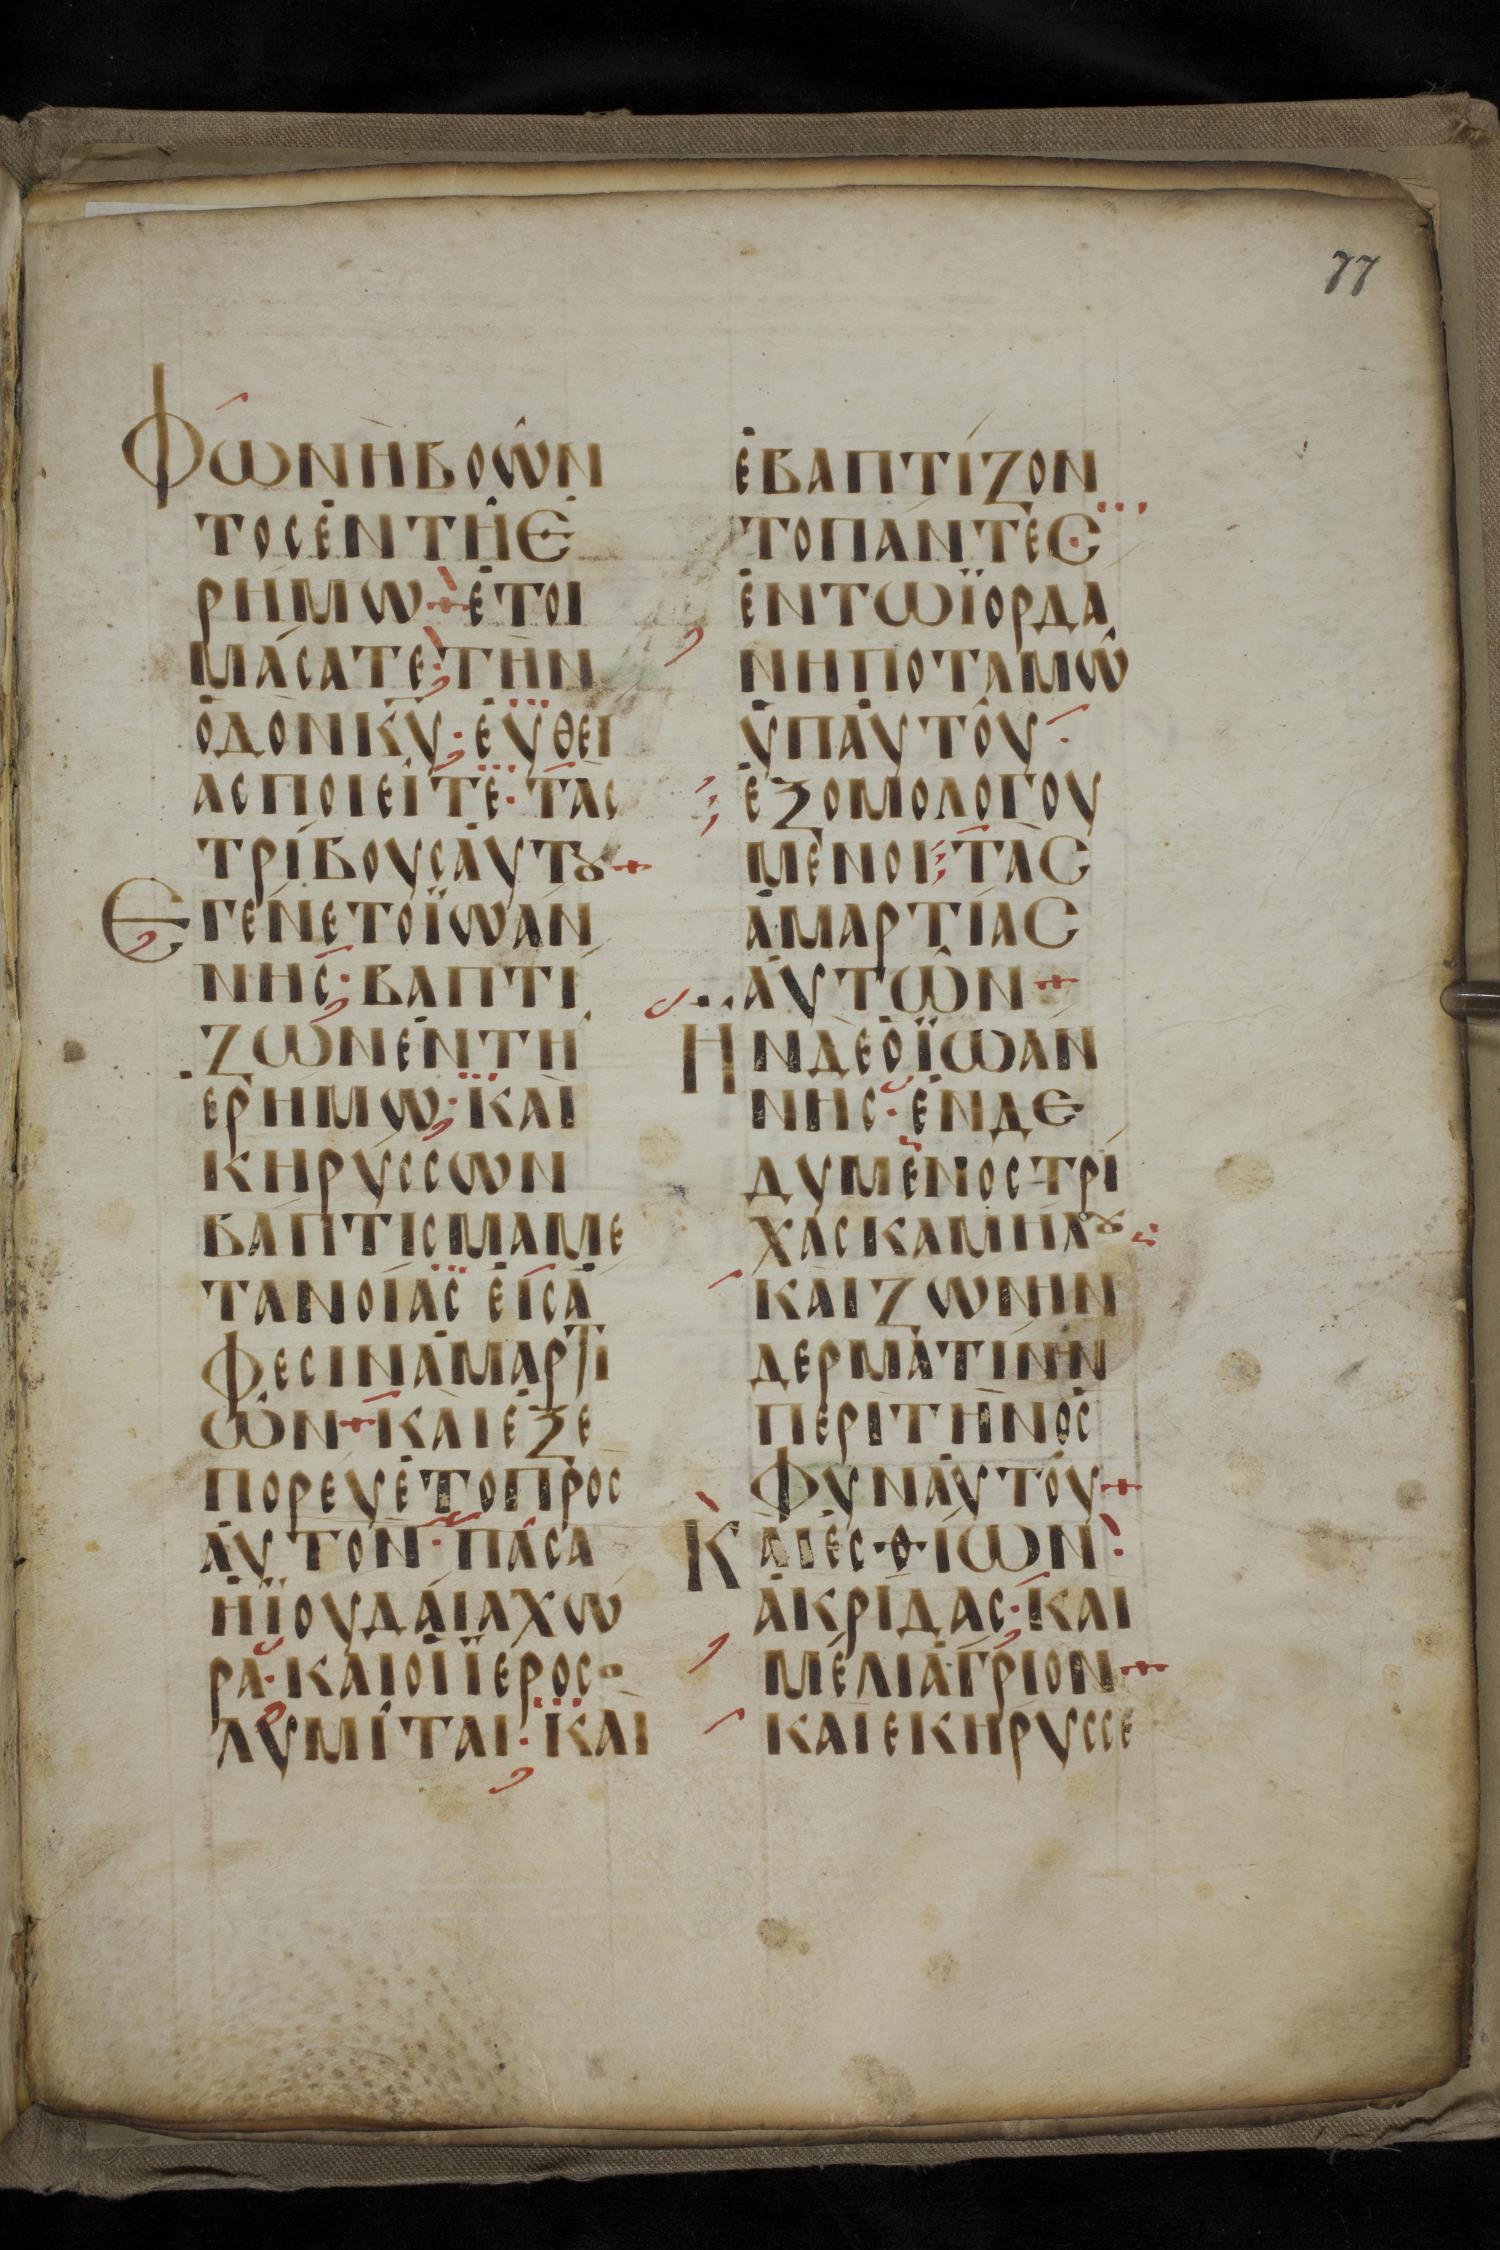 77
ΦΩΝΗΒΟΩΝ
ΤΟΣΕΝΤΗΕ
ΡΗΜΩ+ΕΤΟΙ
ΜΑΣΑΤΕ·ΤΗΝ
ΟΔΟΝΚΥ·ΕΥΘΕΙ
ΑΣΠΟΙΕΙΤΕ·ΤΑΣ
ΤΡΙΒΟΥΣΑΥΤȢ+
ΕΓΕΝΕΤΟΪΩΑΝ
ΝΗΣ·ΒΑΠΤΙ
ΖΩΝΕΝΤΗ
ΕΡΗΜΩ·ΚΑΙ
ΚΗΡΥΣΣΩΝ
ΒΑΠΤΙΣΜΑΜΕ
ΤΑΝΟΙΑΣ ΕΙΣΑ
ΦΕΣΙΝΑΜΑΡΤΙ
ΩΝ+ΚΑΙΕΞΕ
ΠΟΡΕΥΕΤΟΠΡΟΣ
ΑΥΤΟΝ·ΠΑΣΑ
ΗΪΟΥΔΑΙΑΧΩ
ΡΑ·ΚΑΙΟΙΪΕΡΟΣΟ
ΛΥΜΙΤΑΙ·ΚΑΙ
ΕΒΑΠΤΙΖΟΝ
ΤΟΠΑΝΤΕΣ
ΕΝΤΩΪΟΡΔΑ
ΝΗΠΟΤΑΜΩ
ΥΠΑΥΤΟΥ·
ΕΞΟΜΟΛΟΓΟΥ
ΜΕΝΟΙ ΤΑΣ
ΑΜΑΡΤΙΑΣ
ΑΥΤΩΝ+
ΗΝΔΕΟΪΩΑΝ
ΝΗΣ·ΕΝΔΕ
ΔΥΜΕΝΟΣΤΡΙ
ΧΑΣΚΑΜΗΛȢ
ΚΑΙΖΩΝΗΝ
ΔΕΡΜΑΤΙΝΗΝ
ΠΕΡΙΤΗΝΟΣ
ΦΥΝΑΥΤΟΥ+
ΚΑΙΕΣ·Θ·ΙΩΝ·
ΑΚΡΙΔΑΣ·ΚΑΙ
ΜΕΛΙΑΓΡΙΟΝ+
ΚΑΙΕΚΗΡΥΣΣΕ